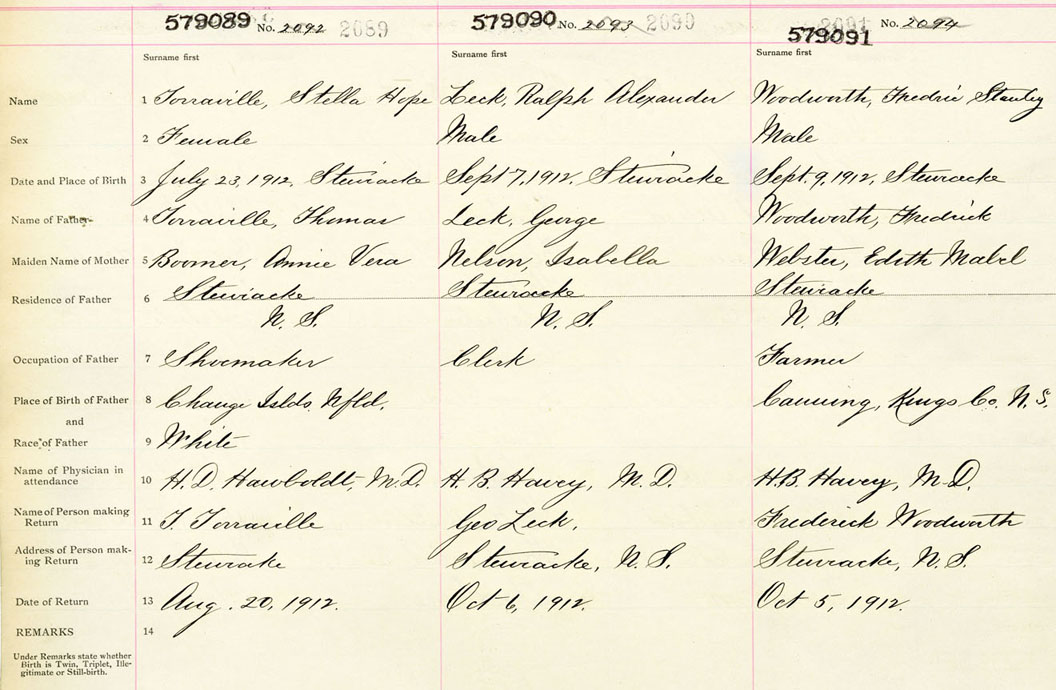 579089 No. 2092 2089 579090 No. 2093 2090 579091 2091 No. 2094
Surname first Surname first Surname first
Name 1 Torraville, Stella Hope Leck, Ralph Alexander Woodworth, Fredric Stanley
Sex 2 Female Male Male
Date and Place of Birth 3 July 23, 1912, Stewiacke Sept 7, 1912. Stewiacke Sept. 9, 1912, Stewiacke
Name of Father 4 Torraville, Thomas Leck, George Woodworth, Fredrick
Maiden Name of Mother 5 Boomer, Annie Vera Nelson, Isabella Webster, Edith Mabel
Residence of Father 6 Stewiacke Stewiacke Stewiacke
N. S. N. S. N. S.
Occupation of Father 7 Shoemaker Clerk Farmer
Place of Birth of Father 8 Change Islds. Nfld. Canning, Kings Co. N. S.
and
Race of Father 9 White
Name of Physician in
attendance 10 H. D. Hawboldt, M.D. H. B. Havey, M. D. H.B. Havey, M.D.
Name of Person making
Return 11 T. Torraville Geo Leck, Frederick Woodworth
Address of Person mak-
ing Return 12 Stewiake Stewiacke, N. S. Stewiacke, N. S.
Date of Return 13 Aug. 20, 1912. Oct 6, 1912. Oct 5, 1912.
REMARKS 14
Under Remarks state whether
Birth is Twin, Triplet, Ille-
gitimate or Still-birth.